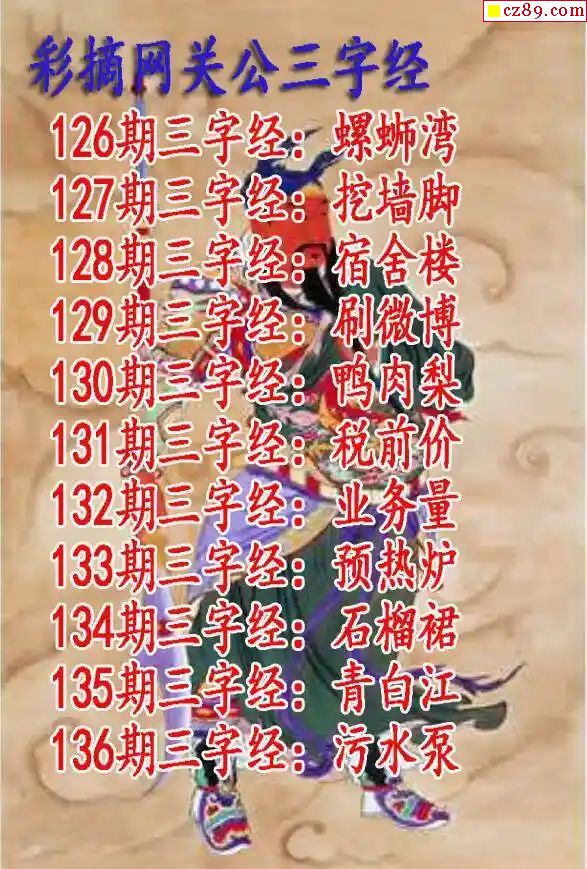 cz89.com
彩摘网关公三字经
126期三字经：螺蛳湾
127期三字经：挖墙脚
128期三字经：宿舍楼
129期三字经：刷微博
130期三字经：鸭肉梨
131期三字经：税前价
132期三字经：业务量
133期三字经：预热炉
134期三字经：石榴裙
135期三字经：青白江
136期三字经：污水泵